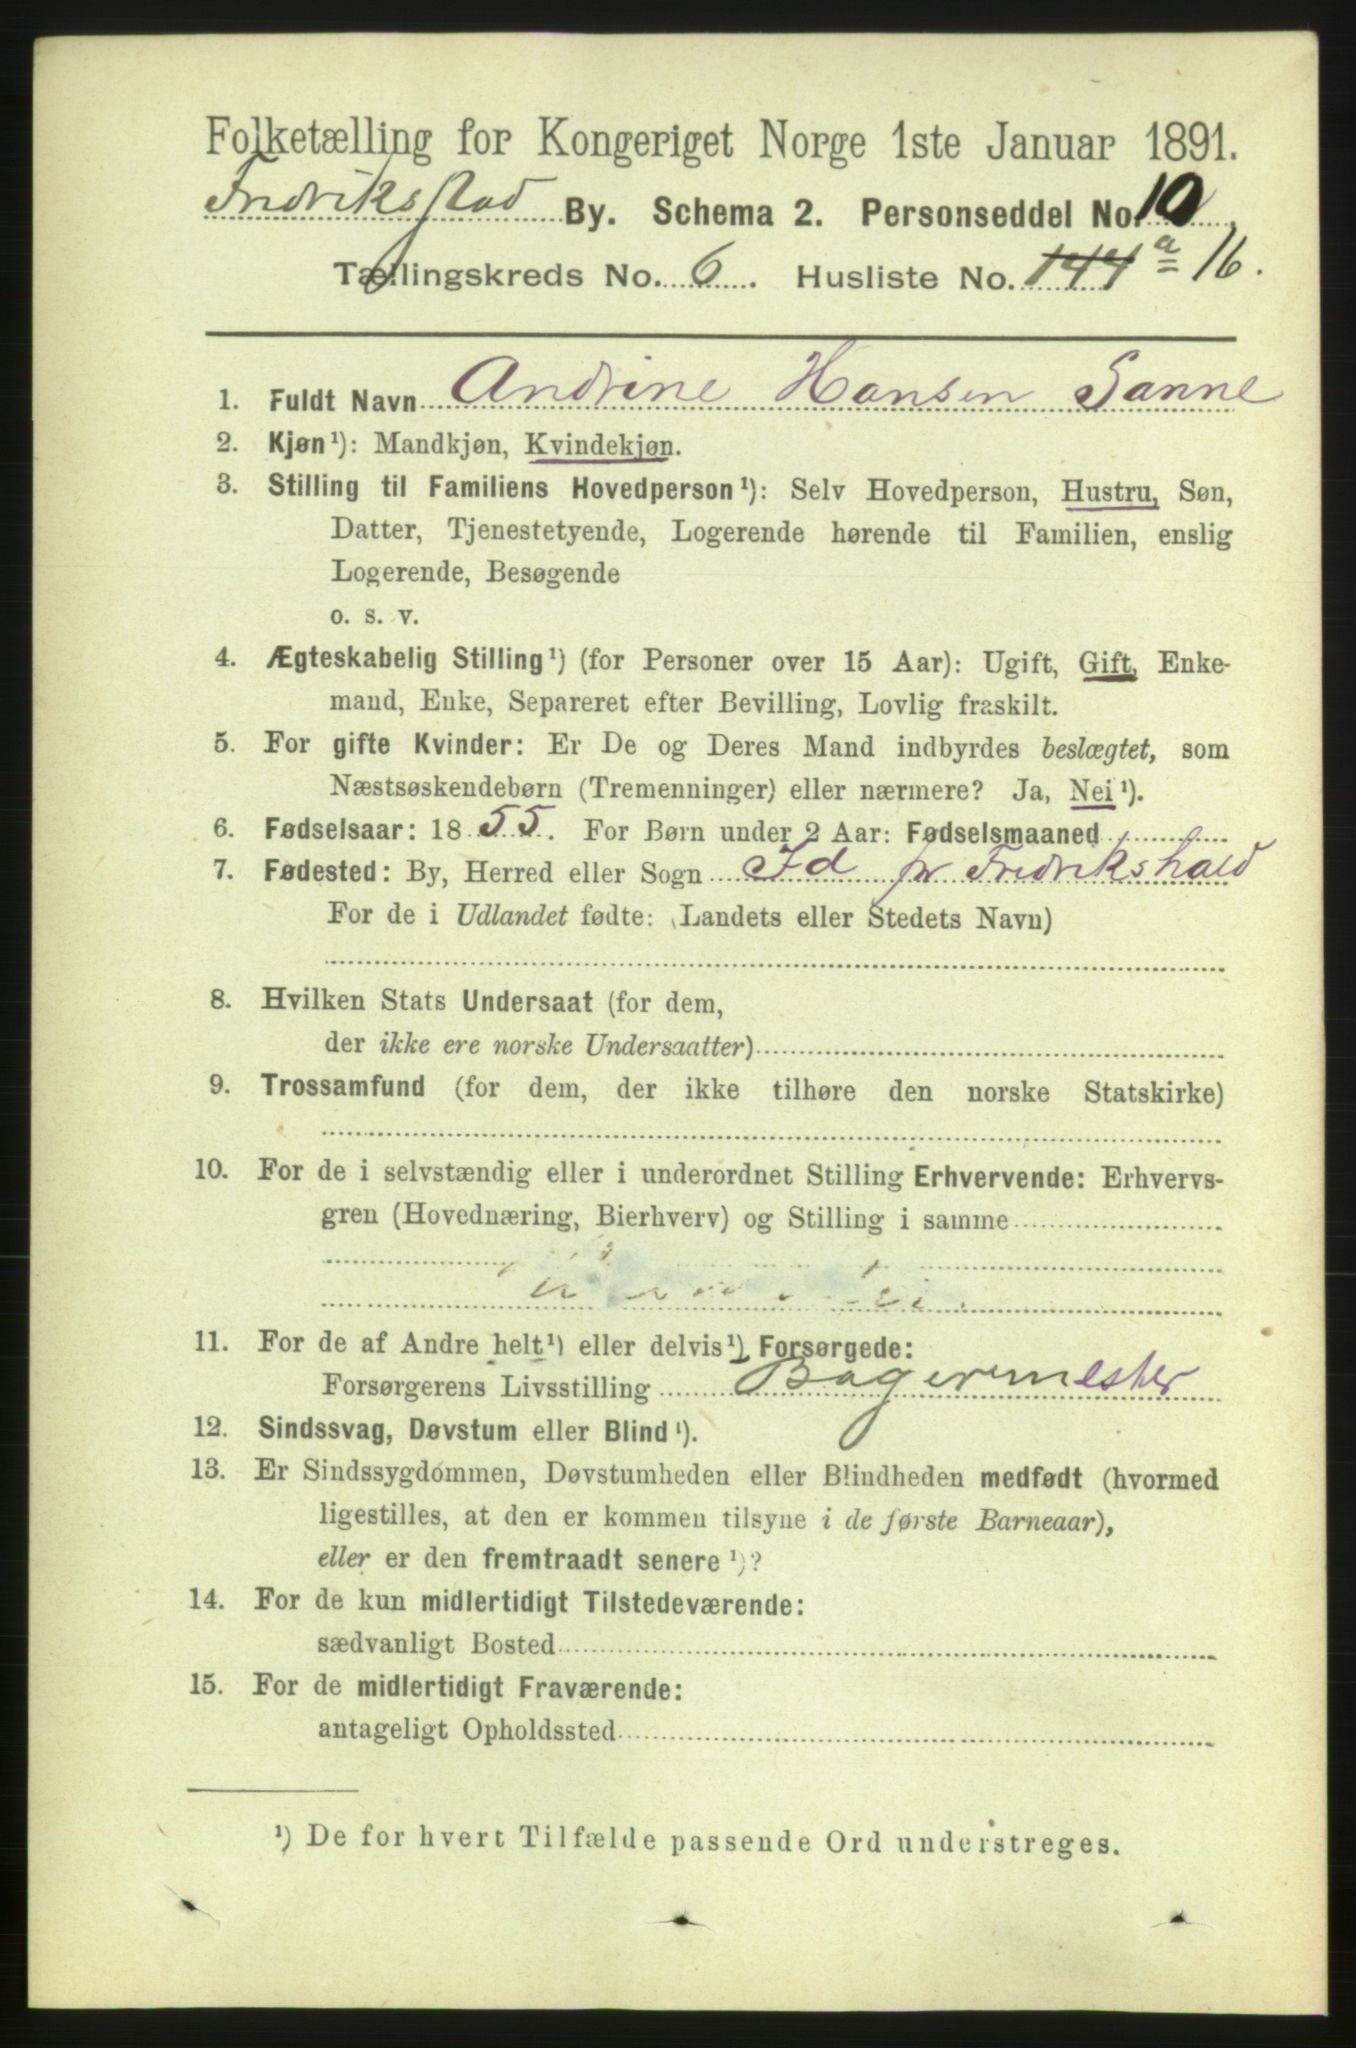 Folketælling for Kongeriget Norge 1ste Januar 1891.
Fredriksstad By. Schema 2. Personseddel No. 10.
Tællingskreds No. 6. Husliste No. 144 a 16.
1. Fuldt Navn Andrine Hansen Sanne
2. Kjøn¹): Mandkjøn, Kvindekjøn.
3. Stilling til Familiens Hovedperson¹): Selv Hovedperson, Hustru, Søn,
Datter, Tjenestetyende, Logerende hørende til Familien, enslig
Logerende, Besøgende
o. s. v.
4. Ægteskabelig Stilling¹) (for Personer over 15 Aar): Ugift, Gift, Enke-
mand, Enke, Separeret efter Bevilling, Lovlig fraskilt.
5. For gifte Kvinder: Er De og Deres Mand indbyrdes beslægtet, som
Næstsøskendebørn (Tremenninger) eller nærmere? Ja, Nei¹).
6. Fødselsaar: 1855. For Børn under 2 Aar: Fødselsmaaned
7. Fødested: By, Herred eller Sogn Id pr Fredrikshald
For de i Udlandet fødte: (Landets eller Stedets Navn)
8. Hvilken Stats Undersaat (for dem,
der ikke ere norske Undersaatter)
9. Trossamfund (for dem, der ikke tilhøre den norske Statskirke)
10. For de i selvstændig eller i underordnet Stilling Erhvervende: Erhvervs-
gren (Hovednæring, Bierhverv) og Stilling i samme
11. For de af Andre helt¹) eller delvis¹) Forsørgede:
Forsørgerens Livsstilling Bagermester
12. Sindssvag, Døvstum eller Blind¹).
13. Er Sindssygdommen, Døvstumheden eller Blindheden medfødt (hvormed
ligestilles, at den er kommen tilsyne i de første Barneaar),
eller er den fremtraadt senere¹)?
14. For de kun midlertidigt Tilstedeværende:
sædvanligt Bosted
15. For de midlertidigt Fraværende:
antageligt Opholdssted
¹) De for hvert Tilfælde passende Ord understreges.